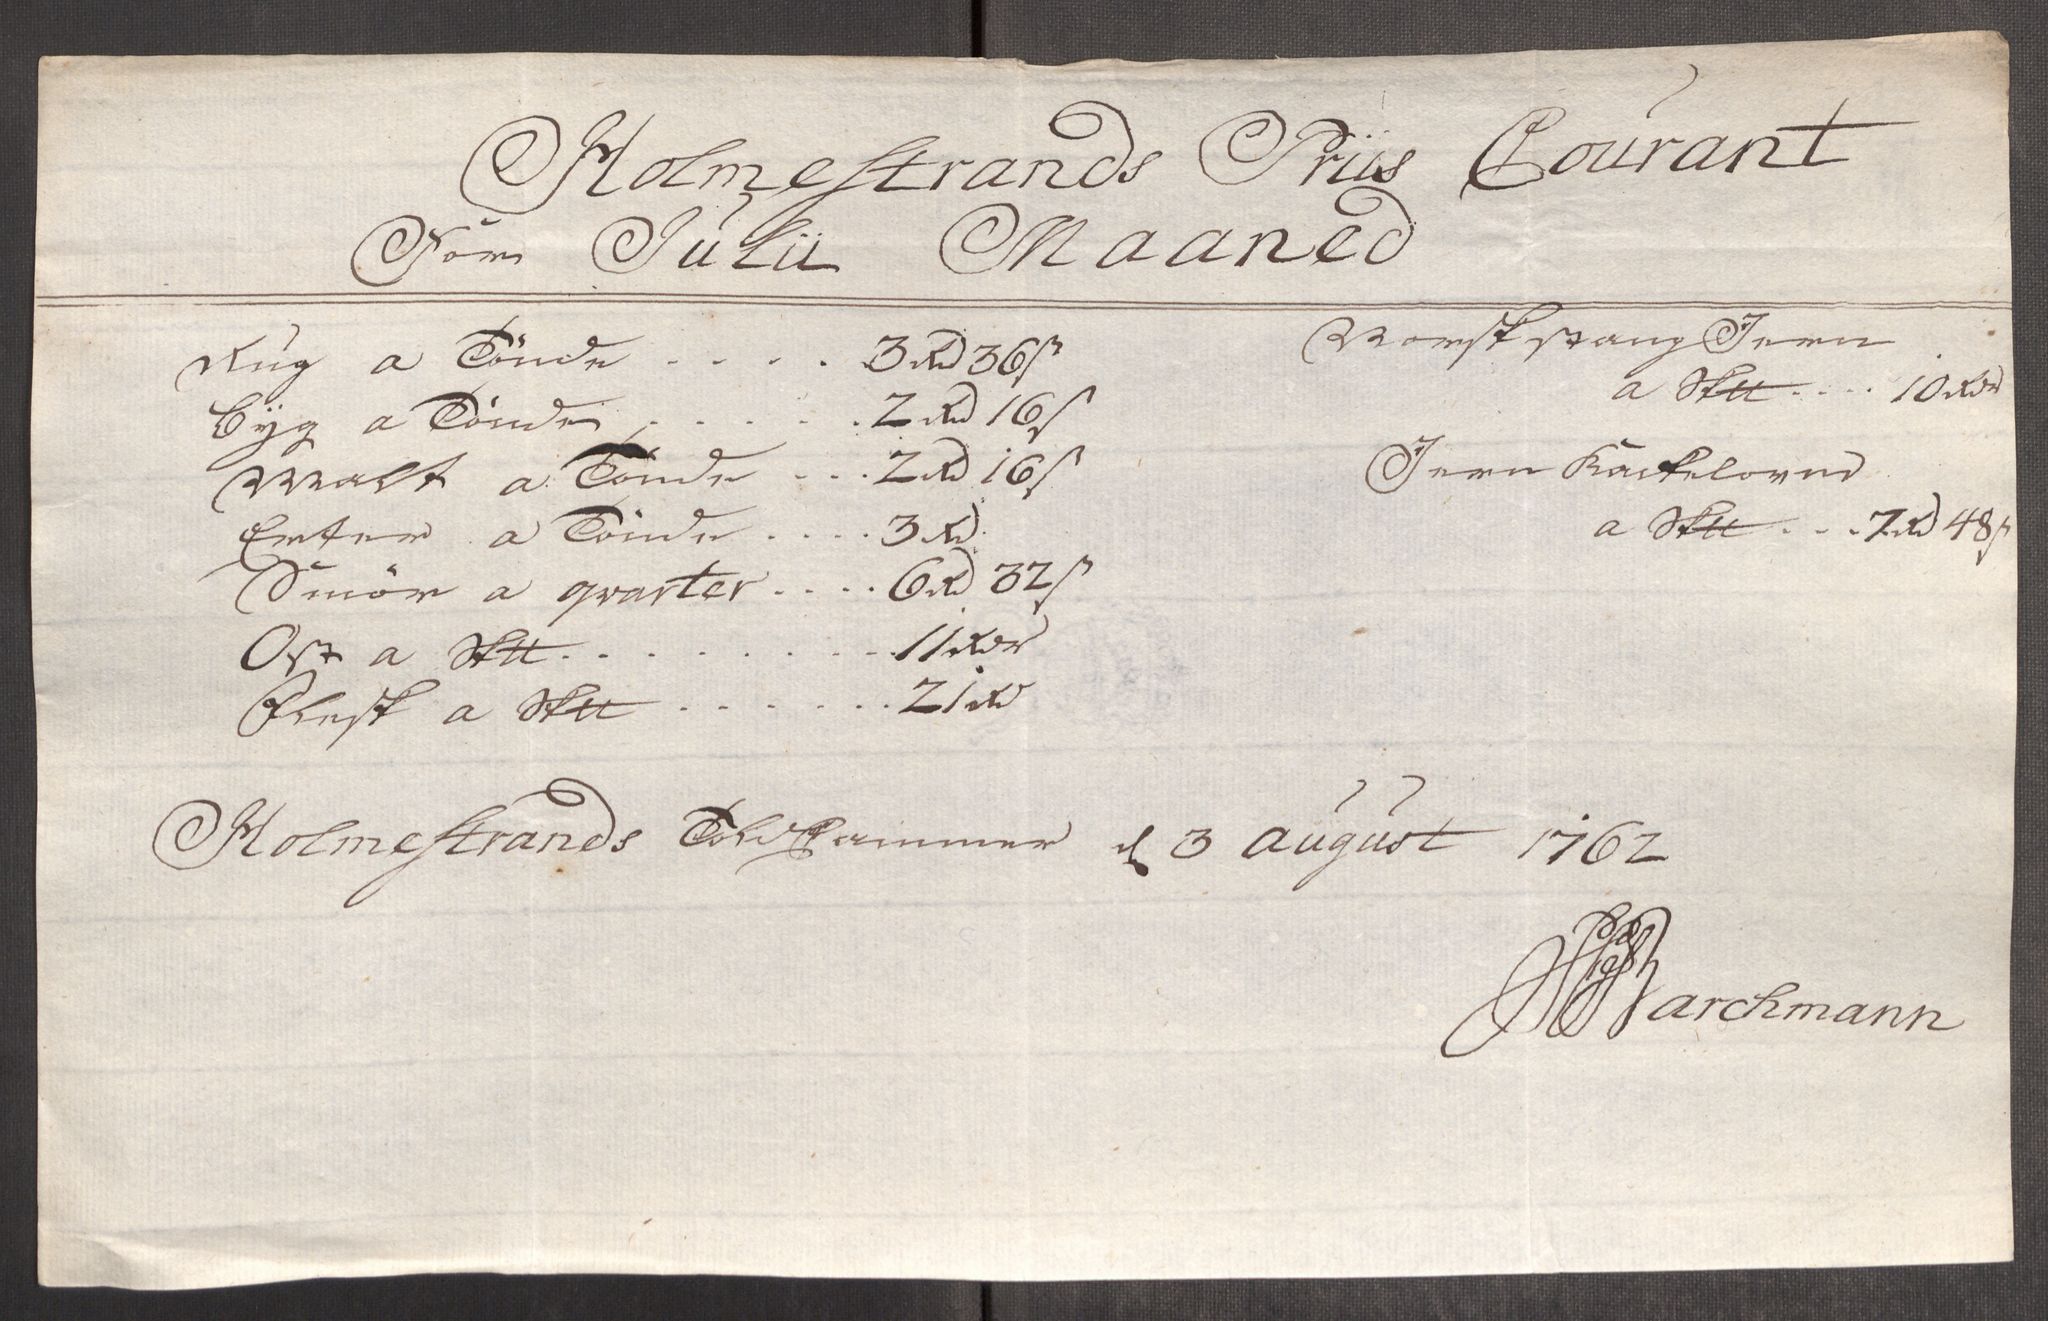 Holmestrands Priis Courant
For Julii Maaned
Rug a Tönde .... 3 Rd 36 s
Byg a Tönde ..... 2 Rd 16 s
Malt a Tönde ... 2 Rd 16 s
Erter a Tönde .... 3 Rd
Smör a qvarter .... 6 Rd 32 s
Ost a Sk℔ ......... 11 Rdr
Flesk a Sk℔ ...... 21 Rd
Norsk stang Jern
a Sk℔ .... 10 Rdr
Jern Kackelovne
a Sk℔ ... 7 Rd 48 s
Holmestrands Told Kammer d 3 august 1762
Barchmann